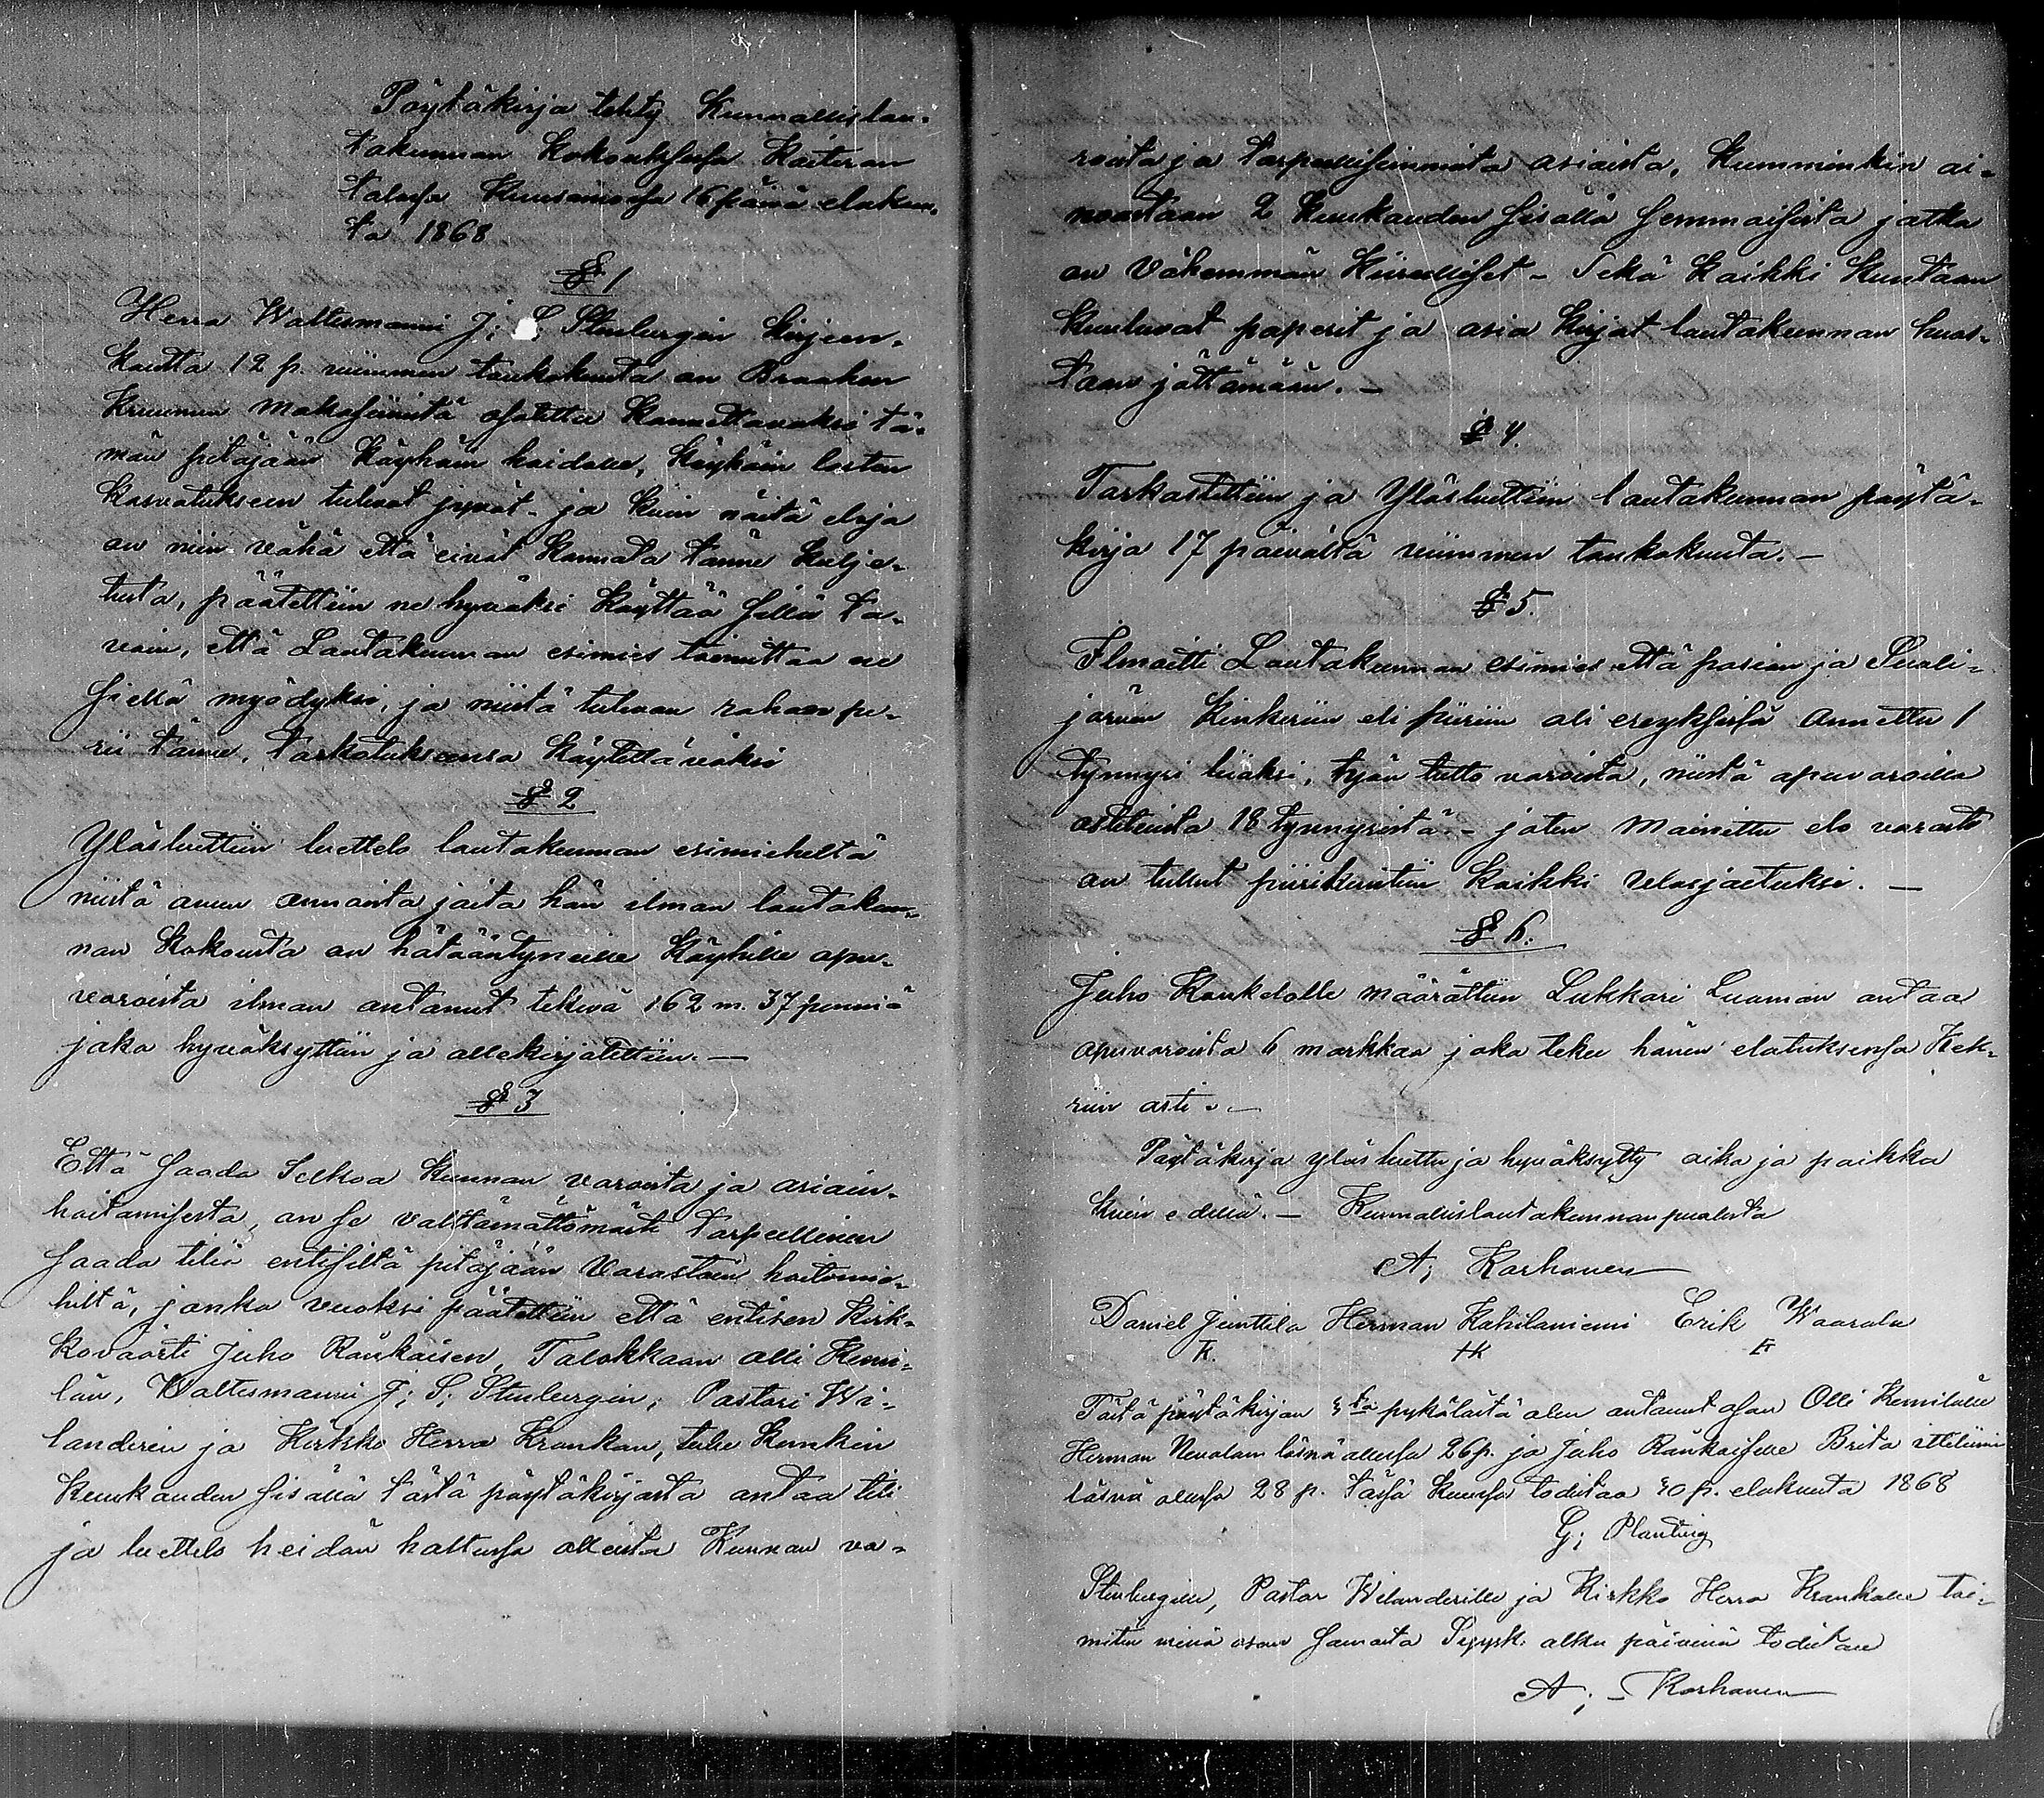 Pöytäkirja tehty Kunnallislau-
takunnan Kokouksessa Kaiteran
talossa Kuusamossa 16 päivä elokuu-
ta 1868
§ 1
Herra Waltesmanni J; S. Stenbergin kirjeen-
kautta 12 p. viimmen toukokuuta on Braahen
Kruunun makasiinista osotettu Kannettavaksi tä-
män pitäjään Köyhäin hoidolle, Köyhäin lasten
Kasvatukseen tulevat jyvät - ja kuin näitä eloja
on niin vähä että eivät kannata tänne Kulje-
tusta, päätettiin ne hyväksi Käyttää sillä ta-
voin, että Lautakunnan esimies toimittaa ne
siellä myödyksi, ja niistä tulevan rahan pe-
rii tänne, tarkotukseensa käytettäväksi
§ 2
Ylösluettiin luettelo lautakunnan esimieheltä
niistä avun annoista joita hän ilman lautakun-
nan Kokousta on hätääntyneille Köyhille apu-
varoista ilman antanut tekevä 162 m. 37 penniä
joka hyväksyttiin ja allekirjotettiin. —
§ 3
Että saada Selkoa Kunnan varoista ja asiain-
hoitamisesta, on se välttämättömästi tarpeellinen
saada tiliä entisiltä pitäjään Varastoin hoitomie-
hiltä, jonka vuoksi päätettiin että entisen Kirk-
kovaarti Juho Räukäisen, Talokkaan Olli Kemi-
län, Waltesmanni J; S; Stenbergin, Pastori Wi-
landerin ja Kirkko Herra Krankan, tulee Kunkin
Kuukauden sisällä tästä pöytäkirjasta antaa tili
ja luettelo heidän hallussa olleista Kunnan va-
roista ja tarpeellisimmista asioista, Kumminkin ai-
noastaan 2 Kuukauden sisällä semmaisista jotka
on Vähemmän Kiireelliset - Sekä Kaikki Kuntaan
Kuuluvat paperit ja asia Kirjat lautakunnan huos-
taan jättämään. —
§ 4.
Tarkastettiin ja Ylösluettiin lautakunnan pöytä-
kirja 17 päivältä viimmen toukokuuta. —
§ 5.
Ilmoitti Lautakunnan esimies että posion ja Suoli-
järven Kinkeriin eli piiriin oli ereyksissä Annettu 1
tynnyri liiaksi, työn tutto varoista, niistä apuvaroilla
ostetuista 18 tynnyristä - joten Mainittu elo varasto
on tullut piirikuntiin Kaikki Ulosjaetuksi. —
§ 6.
Juho Kaukelolle määrättiin Lukkari Luoman antaa
apuvaroista 6 markkaa joka tekee hänen elatuksensa Kek-
riin asti. —
Pöytäkirja ylösluettu ja hyväksytty aika ja paikka
kuin edellä. — Kunnallislautakunnan puolesta
A; Karhanen
Daniel Junttila Herman Kahilaniemi Erik Waarala
Tästä pöytäkirjan 3ta pykälästä olen antanut osan Olli Kemilälle
Herman Nevalan läsnä ollessa 26 p. ja Juho Räukäiselle Brita
läsnä ollessa 28 p. tässä kuussa todistaa 30 p. elokuuta 1868
G; Planting
Stenbergille, Pastor Wilanderille ja Kirkko Herra Krankalle toi-
mitin minä osan samasta Syysk: alku päivinä todistaa
A; Karhanen